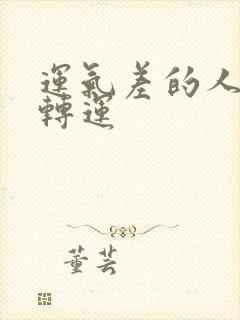 運氣差的人
轉運
董芸